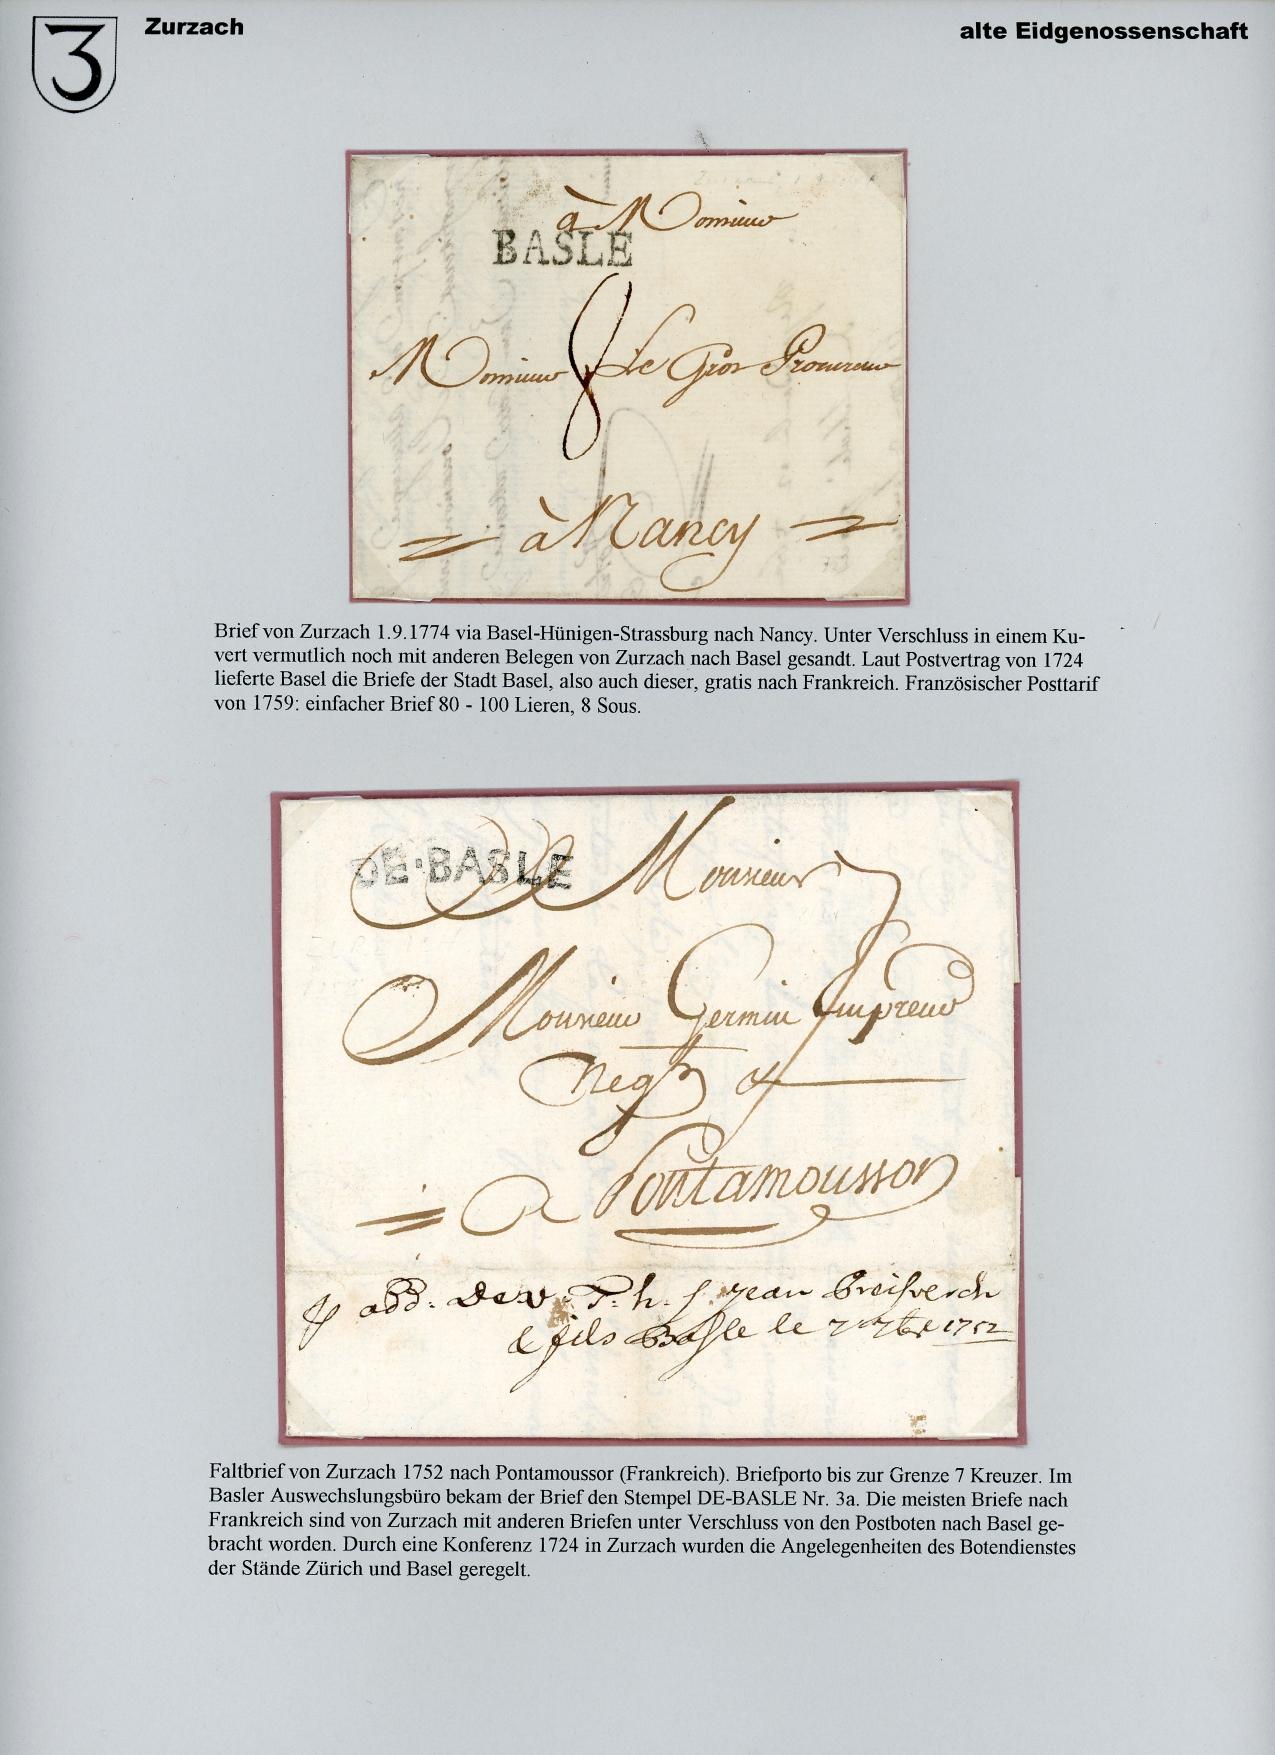 3
Zurzach
alte Eidgenossenschaft
à Monsieur
BASLE
Monsieur Le Gros Procureur
8
à Nancy
Brief von Zurzach 1.9.1774 via Basel-Hünigen-Strassburg nach Nancy. Unter Verschluss in einem Ku-
vert vermutlich noch mit anderen Belegen von Zurzach nach Basel gesandt. Laut Postvertrag von 1724
lieferte Basel die Briefe der Stadt Basel, also auch dieser, gratis nach Frankreich. Französischer Posttarif
von 1759: einfacher Brief 80 - 100 Lieren, 8 Sous.
DE·BASLE
Monsieur
Monsieur Germin
Negt
A Pontamousson
add. Jean Preiswerck
& fils Basle le 7 7bre 1752
Faltbrief von Zurzach 1752 nach Pontamoussor (Frankreich). Briefporto bis zur Grenze 7 Kreuzer. Im
Basler Auswechslungsbüro bekam der Brief den Stempel DE-BASLE Nr. 3a. Die meisten Briefe nach
Frankreich sind von Zurzach mit anderen Briefen unter Verschluss von den Postboten nach Basel ge-
bracht worden. Durch eine Konferenz 1724 in Zurzach wurden die Angelegenheiten des Botendienstes
der Stände Zürich und Basel geregelt.